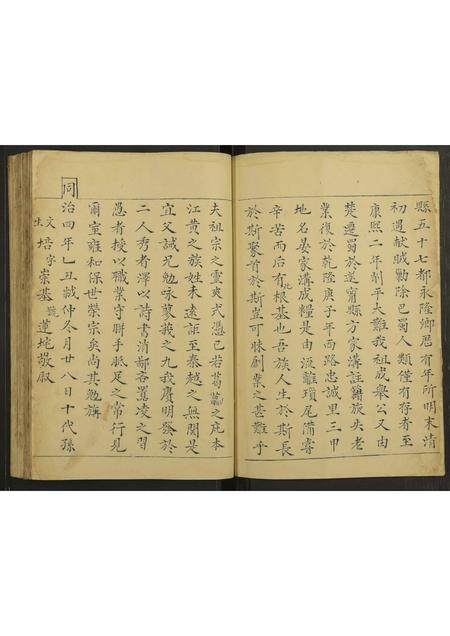 縣五十七都永隆鄉居有年所明末清
初遇献賊勦除巴蜀人類僅有存者至
康熙二年削平大難我祖成舉公又由
楚遷蜀於遂甯縣方家溝註籍旅失老
業復於乾隆庚子年西路忠誠里三甲
地名晏家溝成糧是由流離瑣尾備嘗
辛苦而后有此根基也吾族人生於斯長
於斯聚首於斯豈可昧創業之甚難乎
夫祖宗之靈爽式憑已若葛藟之庇本
江黃之族姓未遠詎至秦越之無関是
宜父誡兄勉咏蓼莪之九我賡明發於
二人秀者澤以詩書清鄙吝置凌之習
愚者授以職業守聯手胝足之常行見
爾室雍和保世榮宗矣尚其勉旃
同治四年乙丑歲仲冬月廿八日十代孫
文生培字崇基號蓮坨敬叙